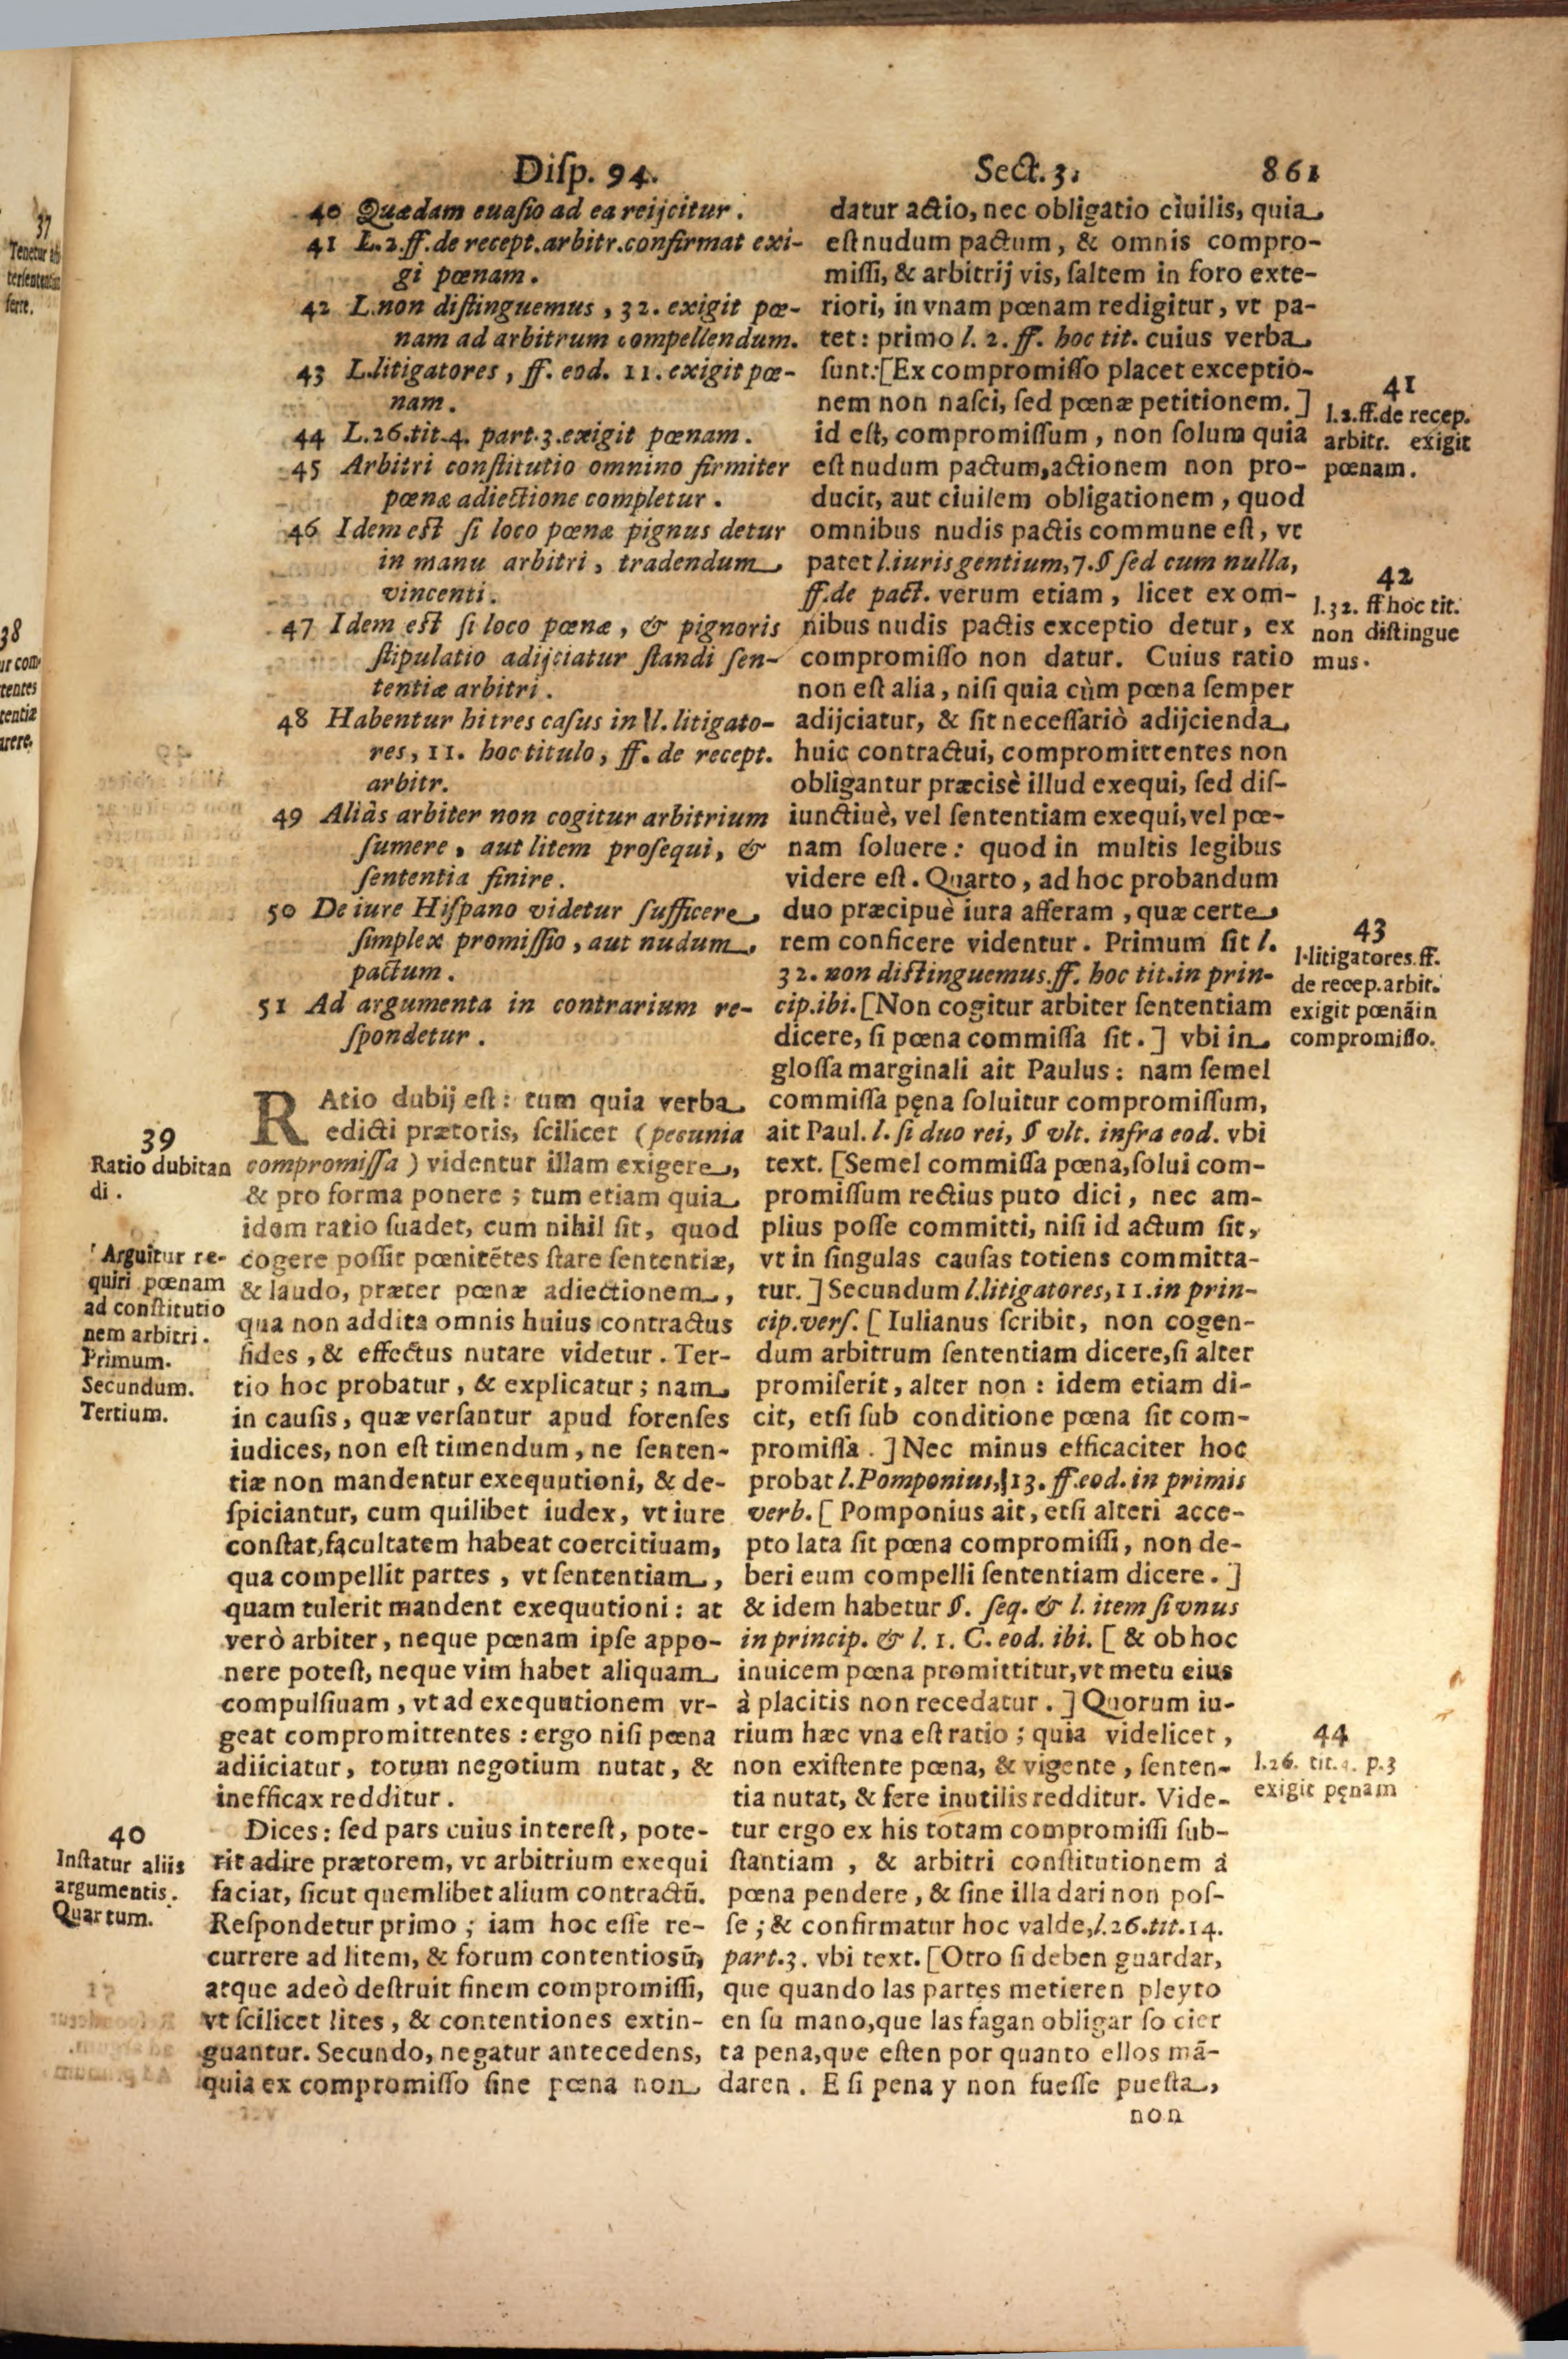 Disp. 94. Sect. 3. 861
40 Quædam euasio ad ea reijcitur.
41 L.2.ff.de recept.arbitr.confirmat exi-
gi pœnam.
42 L.non distinguemus, 32. exigit pœ-
nam ad arbitrum compellendum.
43 L.litigatores, ff. eod. 11. exigit pœ-
nam.
44 L.26.tit.4. part.3.exigit pœnam.
45 Arbitri constitutio omnino firmiter
pœnæ adiectione completur.
46 Idem est si loco pœnæ pignus detur
in manu arbitri, tradendum
vincenti.
47 Idem est si loco pœnæ, & pignoris
stipulatio adijciatur standi sen-
tentiæ arbitri.
48 Habentur hi tres casus in l. litigato-
res, 11. hoc titulo, ff. de recept.
arbitr.
49 Aliàs arbiter non cogitur arbitrium
sumere, aut litem prosequi, &
sententia finire.
50 De iure Hispano videtur sufficere
simplex promissio, aut nudum
pactum.
51 Ad argumenta in contrarium re-
spondetur.
39
Ratio dubitan
di.
Arguitur re-
quiri pœnam
ad constitutio
nem arbitri.
Primum.
Secundum.
Tertium.
RAtio dubij est: tum quia verba
edicti prætoris, scilicet (pecunia
compromissa) videntur illam exigere,
& pro forma ponere; tum etiam quia
idem ratio suadet, cum nihil sit, quod
cogere possit pœnitētes stare sententiæ,
& laudo, præter pœnæ adiectionem,
qua non addita omnis huius contractus
fides, & effectus nutare videtur. Ter-
tio hoc probatur, & explicatur; nam
in causis, quæ versantur apud forenses
iudices, non est timendum, ne senten-
tiæ non mandentur exequutioni, & de-
spiciantur, cum quilibet iudex, vt iure
constat, facultatem habeat coercitiuam,
qua compellit partes, vt sententiam,
quam tulerit mandent exequutioni: at
verò arbiter, neque pœnam ipse appo-
nere potest, neque vim habet aliquam
compulsiuam, vt ad exequutionem vr-
geat compromittentes: ergo nisi pœna
adiiciatur, totum negotium nutat, &
inefficax redditur.
40
Instatur aliis
argumentis.
Quartum.
Dices: sed pars cuius interest, pote-
rit adire prætorem, vt arbitrium exequi
faciat, sicut quemlibet alium contractū.
Respondetur primo; iam hoc esse re-
currere ad litem, & forum contentiosū,
atque adeò destruit finem compromissi,
vt scilicet lites, & contentiones extin-
guantur. Secundo, negatur antecedens,
quia ex compromisso sine pœna non
datur actio, nec obligatio ciuilis, quia
est nudum pactum, & omnis compro-
missi, & arbitrij vis, saltem in foro exte-
riori, in vnam pœnam redigitur, vt pa-
tet: primo l. 2. ff. hoc tit. cuius verba
sunt:[Ex compromisso placet exceptio-
nem non nasci, sed pœnæ petitionem.]
id est, compromissum, non solum quia
est nudum pactum, actionem non pro-
ducit, aut ciuilem obligationem, quod
omnibus nudis pactis commune est, vt
patet l.iuris gentium,7.§ sed cum nulla,
ff.de pact. verum etiam, licet ex om-
nibus nudis pactis exceptio detur, ex
compromisso non datur. Cuius ratio
non est alia, nisi quia cùm pœna semper
adijciatur, & sit necessariò adijcienda
huic contractui, compromittentes non
obligantur præcisè illud exequi, sed dis-
iunctiuè, vel sententiam exequi, vel pœ-
nam soluere: quod in multis legibus
videre est. Quarto, ad hoc probandum
duo præcipuè iura afferam, quæ certe
rem conficere videntur. Primum sit l.
32. non distinguemus.ff. hoc tit.in prin-
cip.ibi.[Non cogitur arbiter sententiam
dicere, si pœna commissa sit.] vbi in
glossa marginali ait Paulus: nam semel
commissa pęna soluitur compromissum,
ait Paul. l. si duo rei, § vlt. infra eod. vbi
text. [Semel commissa pœna, solui com-
promissum rectius puto dici, nec am-
plius posse committi, nisi id actum sit,
vt in singulas causas totiens committa-
tur.] Secundum l.litigatores,11.in prin-
cip.vers. [Iulianus scribit, non cogen-
dum arbitrum sententiam dicere, si alter
promiserit, alter non: idem etiam di-
cit, etsi sub conditione pœna sit com-
promissa.] Nec minus efficaciter hoc
probat l.Pomponius,13. ff.eod.in primis
verb. [Pomponius ait, etsi alteri acce-
pto lata sit pœna compromissi, non de-
beri eum compelli sententiam dicere.]
& idem habetur §. seq. & l. item si vnus
in princip. & l. 1. C. eod. ibi. [& ob hoc
inuicem pœna promittitur, vt metu eius
à placitis non recedatur.] Quorum iu-
rium hæc vna est ratio; quia videlicet,
non existente pœna, & vigente, senten-
tia nutat, & fere inutilis redditur. Vide-
tur ergo ex his totam compromissi sub-
stantiam, & arbitri constitutionem à
pœna pendere, & sine illa dari non pos-
se; & confirmatur hoc valde, l.26.tit.14.
part.3. vbi text. [Otro si deben guardar,
que quando las partes metieren pleyto
en su mano, que las fagan obligar so cier
ta pena, que esten por quanto ellos mā-
daren. E si pena y non fuesse puesta,
non
41
l.2.ff.de recep.
arbitr. exigit
pœnam.
42
l.32. ff hoc tit.
non distingue
mus.
43
l.litigatores.ff.
de recep.arbit.
exigit pœnā in
compromisso.
44
l.26. tit.4. p.3
exigit pęnam
37
Tenetur
ferre.
38